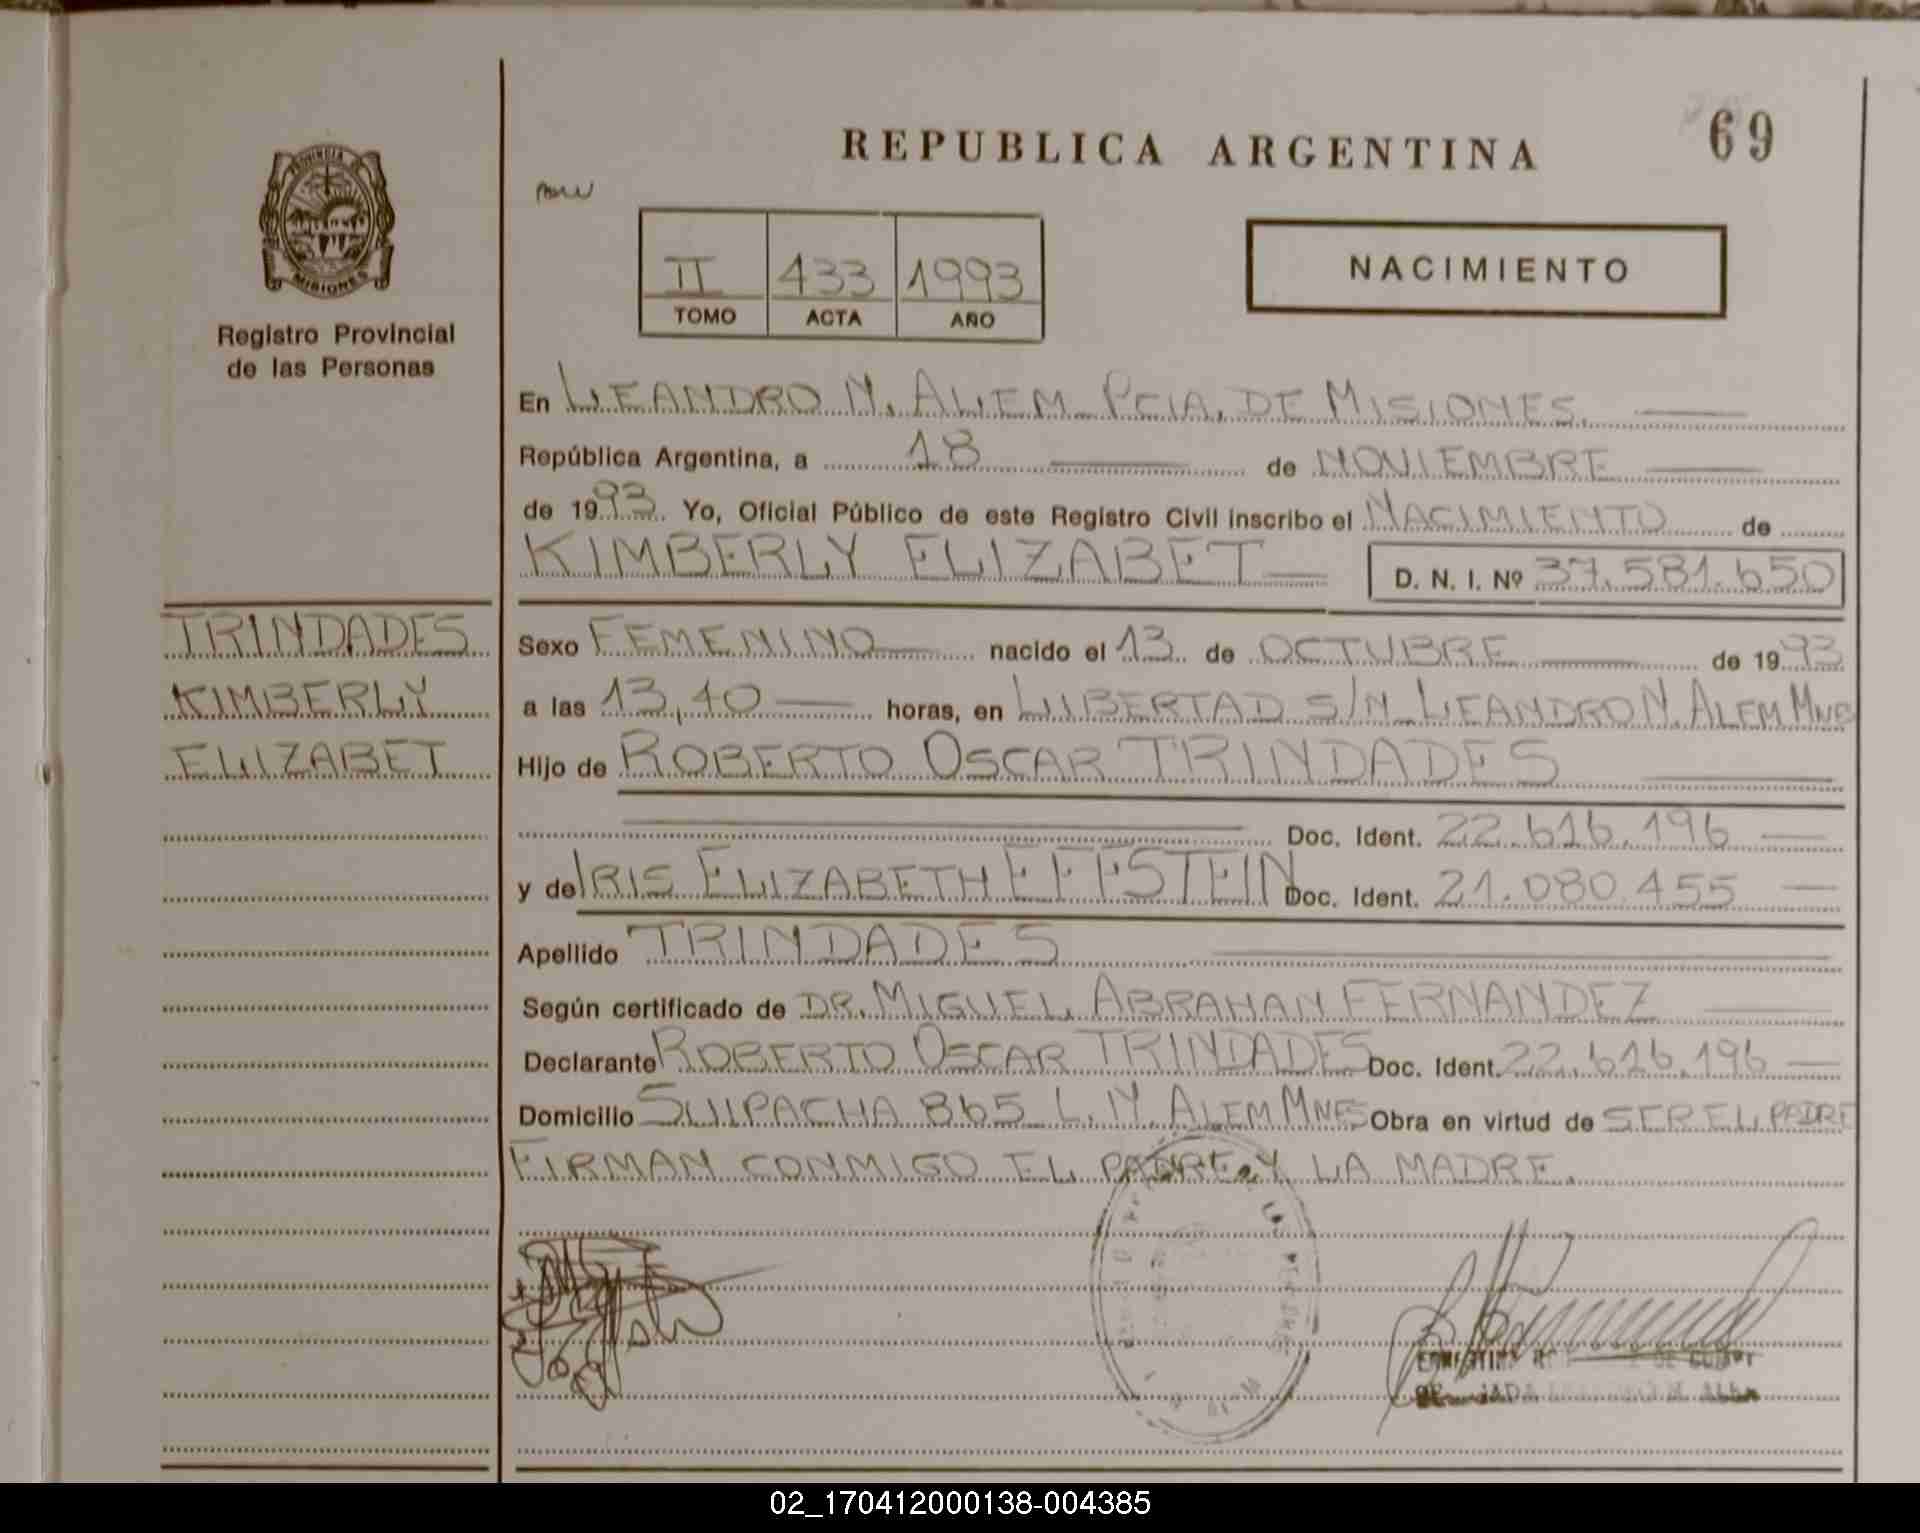 REPUBLICA ARGENTINA
69
PROVINCIA DE
MISIONES
Registro Provincial
de las Personas
II 433 1993
TOMO ACTA AÑO
NACIMIENTO
En LEANDRO N. ALEM PCIA. DE MISIONES.
República Argentina, a 18 de NOVIEMBRE
de 1993. Yo, Oficial Público de este Registro Civil inscribo el NACIMIENTO de
KIMBERLY ELIZABET D. N. I. Nº 37.581.650
TRINDADES
KIMBERLY
ELIZABET
Sexo FEMENINO nacido el 13 de OCTUBRE de 1993
a las 13,40 horas, en LIBERTAD S/N LEANDRO N. ALEM MNES
Hijo de ROBERTO OSCAR TRINDADES
Doc. Ident. 22.616.196
y de IRIS ELIZABETH EFFSTEIN Doc. Ident. 21.080.455
Apellido TRINDADES
Según certificado de DR. MIGUEL ABRAHAN FERNANDEZ
Declarante ROBERTO OSCAR TRINDADES Doc. Ident. 22.616.196
Domicilio SUIPACHA 865 L.N. ALEM MNES Obra en virtud de SER EL PADRE
FIRMAN CONMIGO EL PADRE Y LA MADRE.
02_170412000138-004385